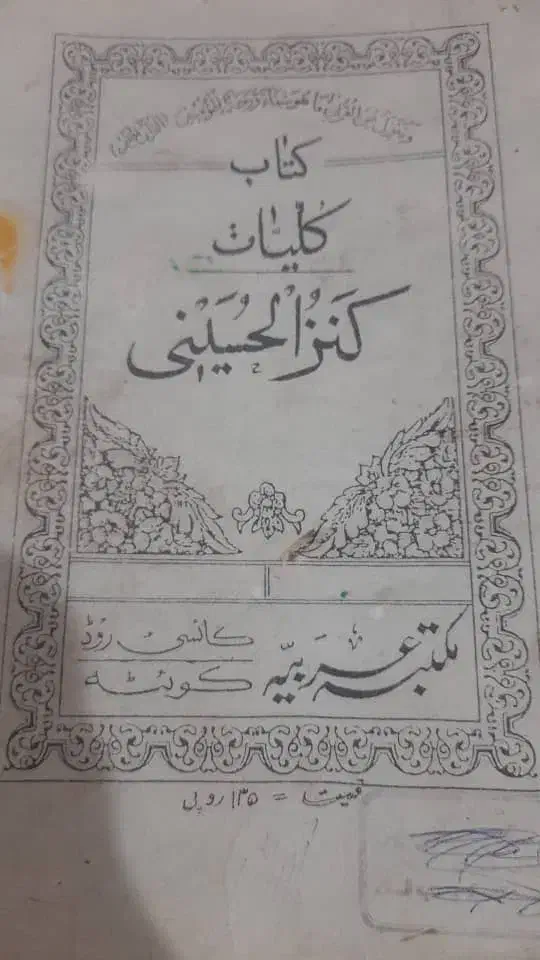 کتاب
کُلیّات
کَنزُ الحُسَینِی
مکتبہ عَرَبیّہ
کانسی روڈ
کوئٹہ
قیمت = ۱۳۵ روپی